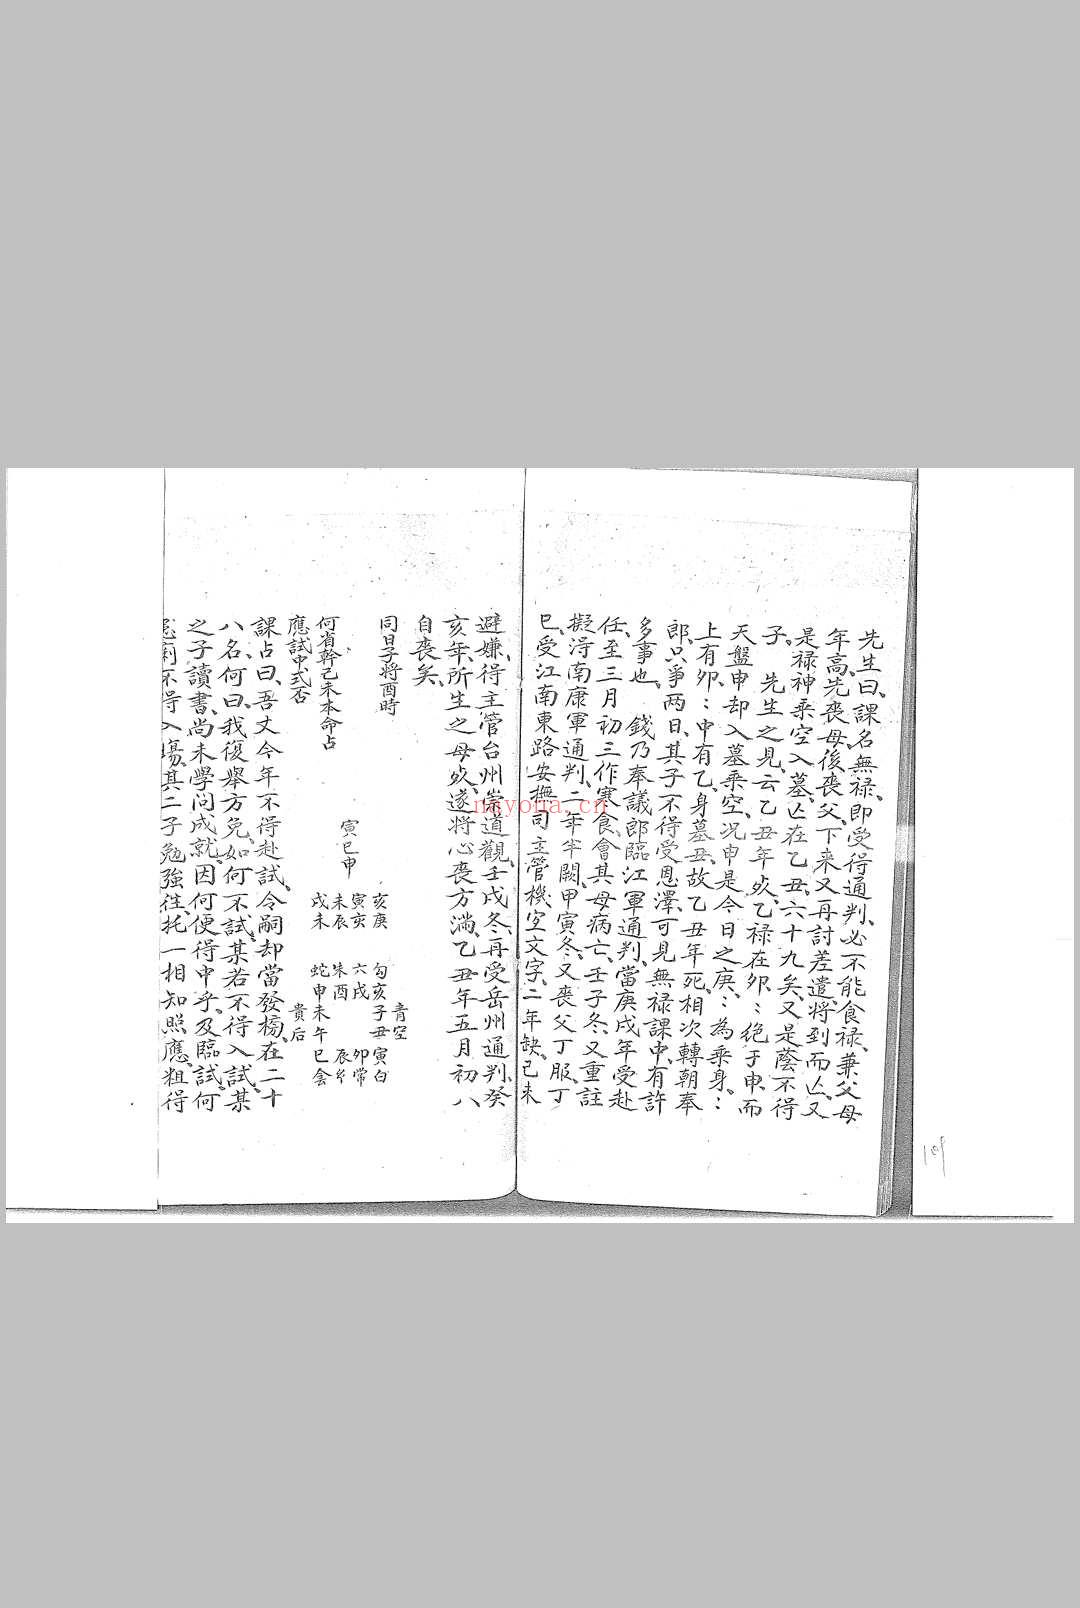 先生曰、課名無祿、即受得通判、必不能食祿、兼父母
年高、先喪母後喪父、下來又再討差遣、將到而亡、又
是祿神乘空入墓、亡在乙丑、六十九矣、又是蔭不得
子、先生之見、云乙丑年歿、乙祿在卯：絕于申、而
天盤申却入墓乘空、况申是今日之庚：為乘身：
上有卯：申有乙、身墓丑、故乙丑年死、相次轉朝奉
郎、只爭两日、其子不得受恩澤、可見無祿課中、有許
多事也、錢乃奉議郎臨江軍通判、當庚戌年受赴
任、至三月初三作寒食、會其母病亡、壬子冬、又重註
擬淂南康軍通判、二年半闕、甲寅冬、又喪父丁服、丁
巳、受江南東路安撫司主管機宜文字、二年缺、己未
避嫌、得主管台州崇道觀、壬戌冬、再受岳州通判、癸
亥年、所生之母歿、遂將心喪方滿、乙丑年五月初八
自喪矣、
同日子將酉時
何省幹己未本命占
應試中式否
寅巳申
亥庚
寅亥
未辰
戌未
青空
勾亥子丑寅白
六戌 卯常
朱酉 辰
蛇申未午巳陰
貴后
課占曰、吾丈今年不得赴試、令嗣却當發榜、在二十
八名、何曰、我復舉方免、如何不試、某若不得入試、某
之子讀書、尚未學问成就、因何便得中乎、及臨試、何
不得入場、其二子勉強往、托一相知照應、粗得
nayona.cn